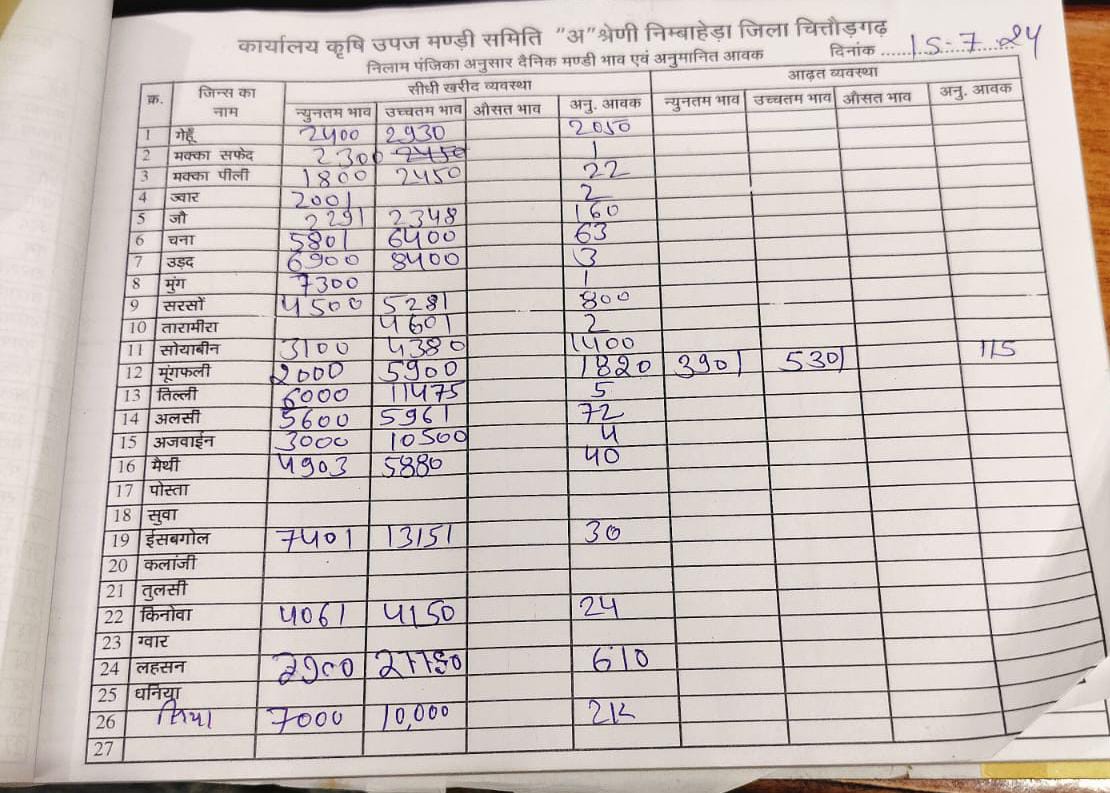 कार्यालय कृषि उपज मण्डी समिति "अ" श्रेणी निम्बाहेड़ा जिला चित्तौड़गढ़
निलाम पंजिका अनुसार दैनिक मण्डी भाव एवं अनुमानित आवक दिनांक 15-7-24
क्र. जिन्स का नाम सीधी खरीद व्यवस्था आढ़त व्यवस्था
न्युनतम भाव उच्चतम भाव औसत भाव अनु. आवक न्युनतम भाव उच्चतम भाव औसत भाव अनु. आवक
1 गेहूँ 2400 2930 2050
2 मक्का सफेद 2300 1
3 मक्का पीली 1800 2450 22
4 ज्वार 2001 2
5 जौ 2291 2348 160
6 चना 5801 6400 63
7 उड़द 6900 8400 3
8 मुंग 7300 1
9 सरसों 4500 5281 800
10 तारामीरा 4601 2
11 सोयाबीन 3100 4380 1400
12 मूंगफली 2000 5900 1820 3901 5301 115
13 तिल्ली 6000 11475 5
14 अलसी 5600 5961 72
15 अजवाईन 3000 10500 4
16 मैथी 4903 5880 40
17 पोस्ता
18 सुवा
19 ईसबगोल 7401 13151 30
20 कलांजी
21 तुलसी
22 किनोवा 4061 4150 24
23 ग्वार
24 लहसन 2900 610
25 धनिया
26 7000 10,000
27